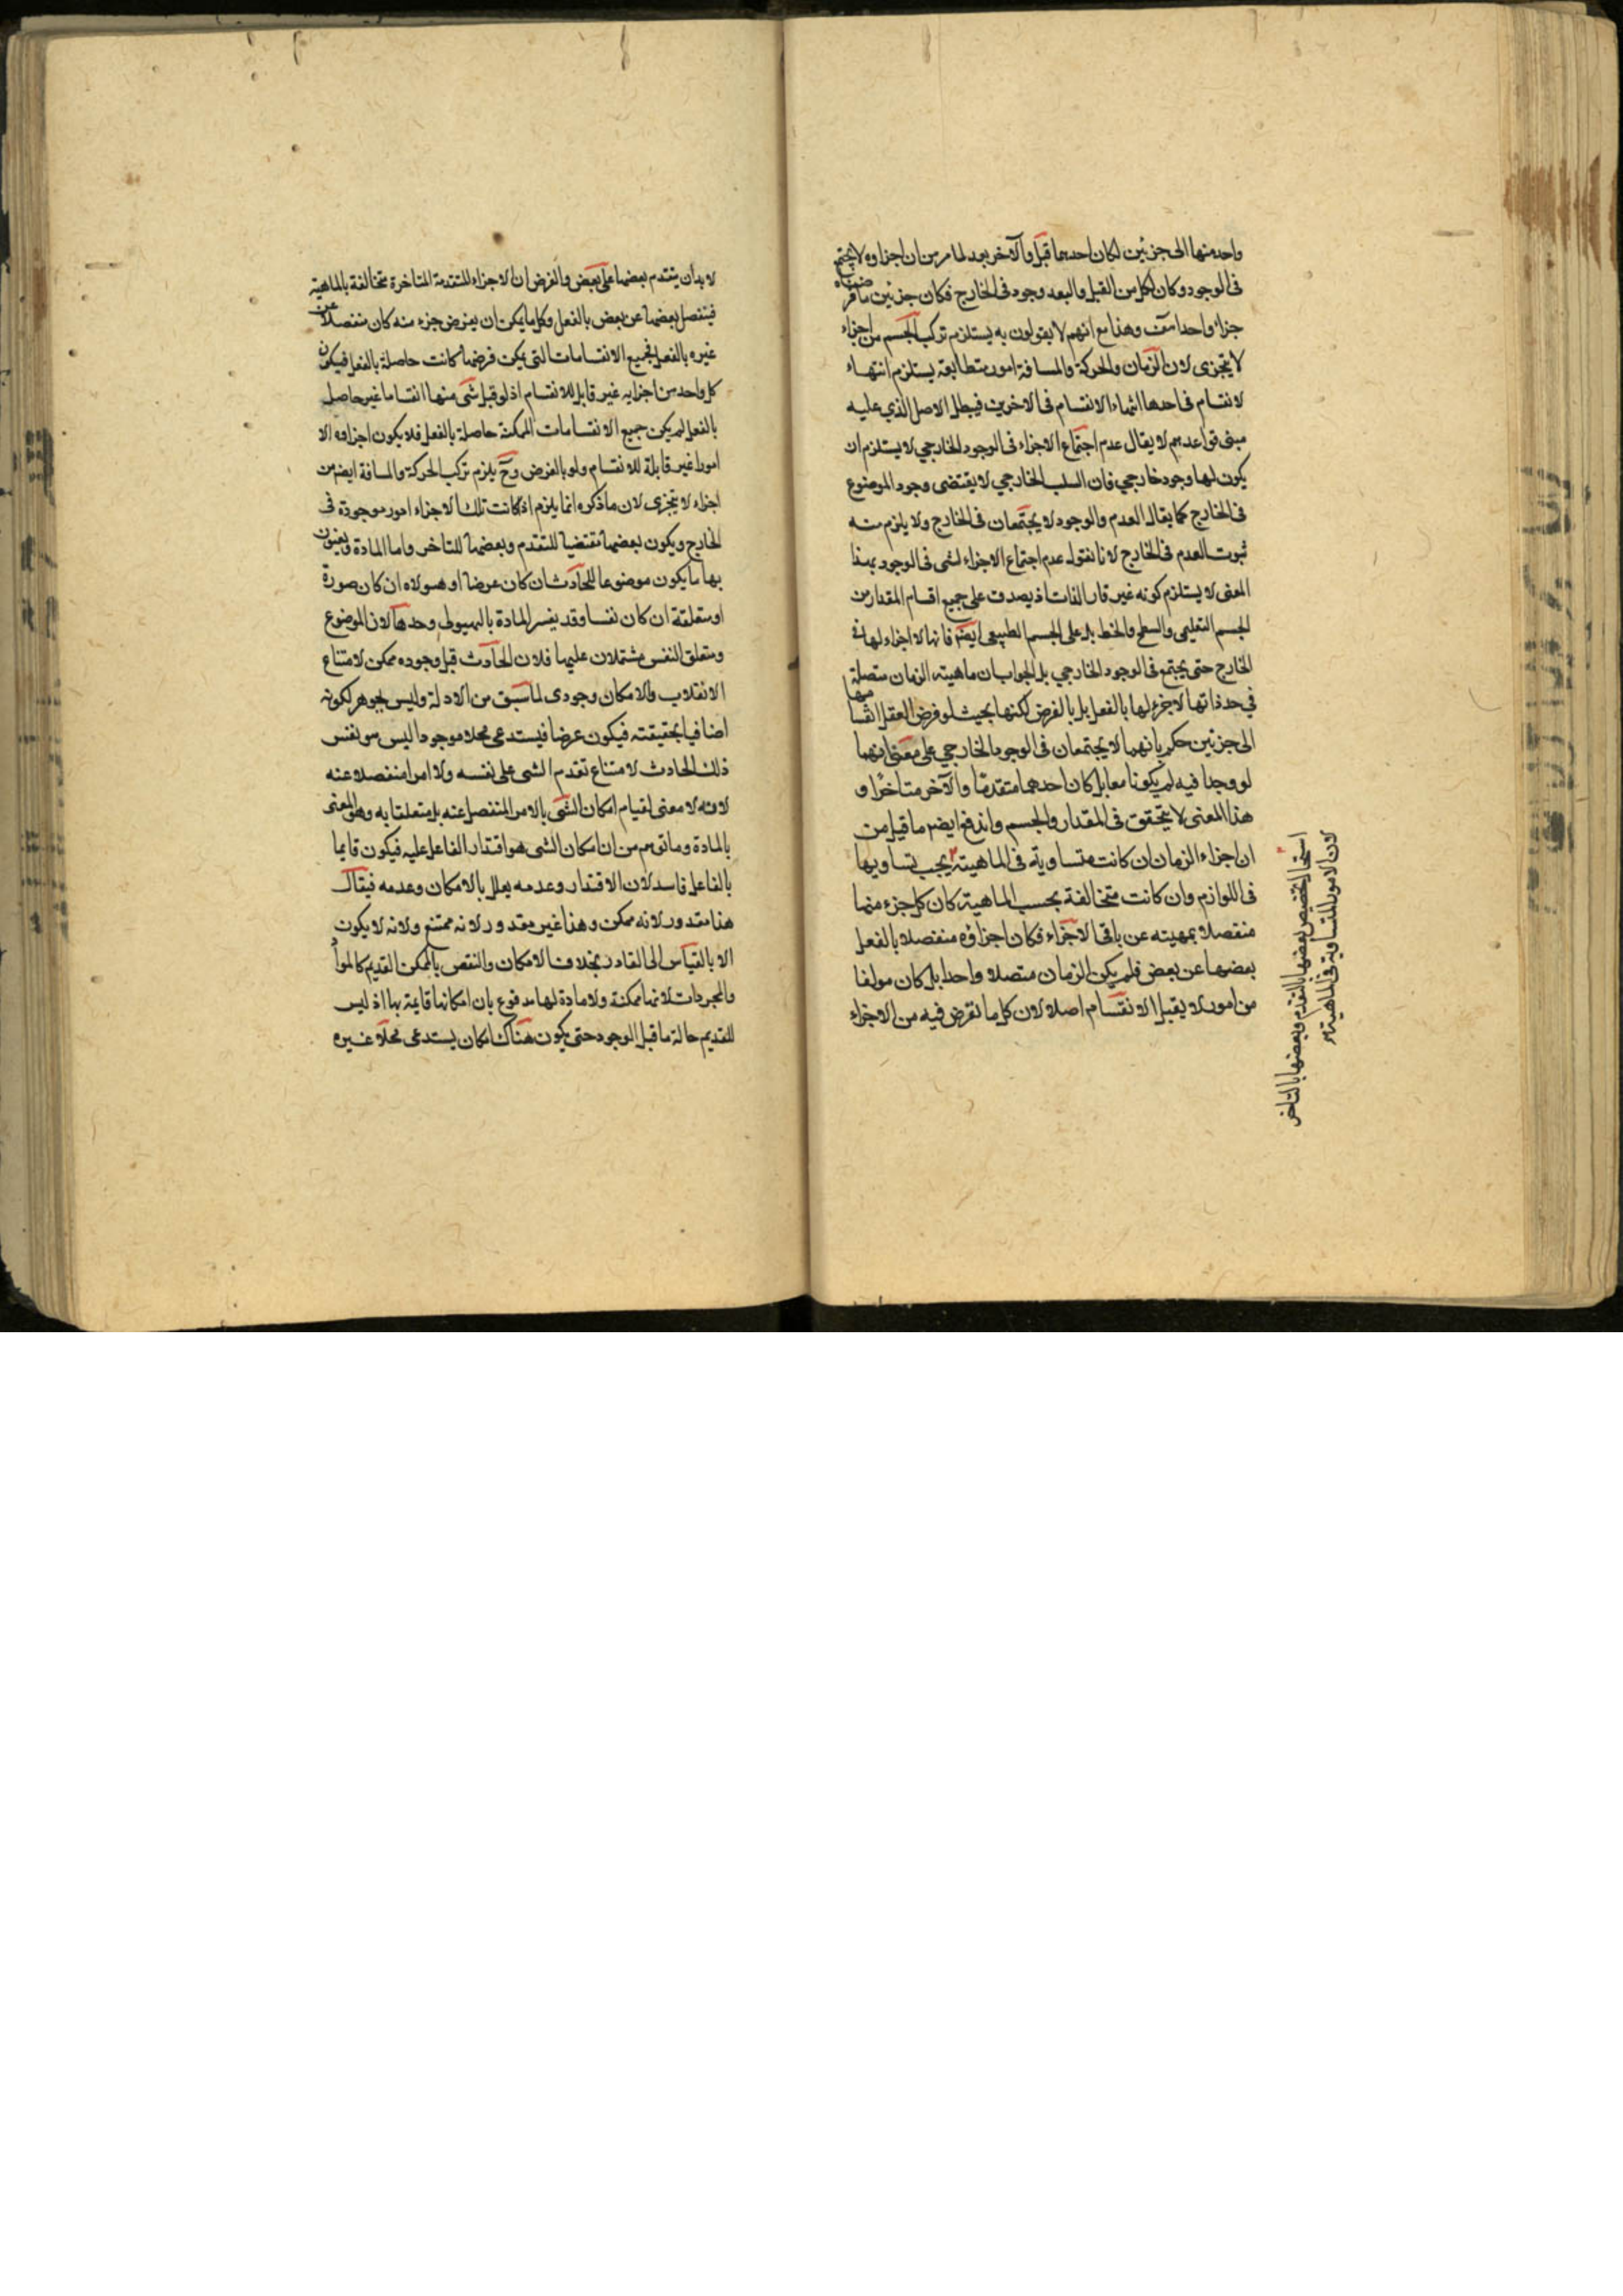 واحد منها الى جزئين لكان احدهما قبل والآخر بعد لما مر من ان اجزاوه لا يجتمع
فى الوجود وكان لكل من القبل والبعد وجود فى الخارج فكان جزئين ما فرضناه
جزاء واحدا هف وهذا مع انهم لا يقولون به يستلزم تركب الجسم من اجزاء
لا يتجزى لان الزمان والحركة والمسافة امور متطابقة يستلزم انتهاء
لانقسام فى احدها انتهاء الانقسام فى الاخرين فيبطل الاصل الذي عليه
مبنى قواعدهم لا يقال عدم اجتماع الاجزاء فى الوجود الخارجي لا يستلزم ان
يكون لها وجود خارجي فان السلب الخارجي لا يقتضى وجود الموضوع
فى الخارج كما يقال العدم والوجود لا يجتمعان فى الخارج ولا يلزم منه
ثبوت العدم فى الخارج لانا نقول عدم اجتماع الاجزاء لشى فى الوجود بهذا
المعنى لا يستلزم كونه غير قار الذات اذ يصدق على جميع اقسام المقدار من
الجسم التعليمى والسطح والخط بل على الجسم الطبيعى ايضم فانها لا اجزاء لها فى
الخارج حتى يجتمع فى الوجود الخارجي بل الجواب ان ماهيته الزمان متصلة
في حد ذاتها لا جزء لها بالفعل بل بالفرض لكنها بحيث لو فرض العقل انقسامها
الى جزئين حكم بانهما لا يجتمعان فى الوجود الخارجي على معنى انهما
لو وجدا فيه لم يكونا معا بل كان احدهما متقدمًا والآخر متاخرًا و
هذا المعنى لا يتحقق فى المقدار والجسم واندفع ايضم ما قيل من
ان اجزاء الزمان ان كانت متساوية فى الماهيته يجب تساويها
فى اللوازم وان كانت متخالفة بحسب الماهيته كان كل جزء منها
منفصلا بمهيته عن باقى الاجزاء فكان اجزاؤه منفصلا بالفعل
بعضها عن بعض فلم يكن الزمان متصلا واحدا بل كان مولفا
من امور لا يقبل الانقسام اصلا لان كل ما نفرض فيه من الاجزاء
استحال تخصيص بعضها بالتقدم وبعضها بالتاخر
لان الامور المتساوية فى الماهيته
لا بد أن يتقدم بعضها على بعض والفرض ان الاجزاء المتقدمة المتاخرة متخالفة بالماهية
فينفصل بعضها عن بعض بالفعل وكل ما يمكن ان يفرض جزء منه كان منفصلا عن
غيره بالفعل فجميع الانقسامات التى يمكن فرضها كانت حاصلة بالفعل فيكون
كل واحد من اجزايه غير قابل للانقسام اذ لو قبل شى منها انقساما غير حاصل
بالفعل لم يكن جميع الانقسامات الممكنة حاصلة بالفعل فلا يكون اجزاوه الا
امورا غير قابلة للانقسام ولو بالفرض وح يلزم تركب الحركة والمسافة ايضم من
اجزاء لا يتجزى لان ما ذكره انما يلزم اذ كانت تلك الاجزاء امور موجودة فى
الخارج ويكون بعضها مقتضيا للتقدم وبعضها للتاخر واما المادة ويعنون
بها ما يكون موضوعا للحادث ان كان عرضا او هيولاه ان كان صورة
او متعلقة ان كان نفسا وقد يفسر المادة بالهيولى وحدها لان الموضوع
ومتعلق النفس مشتملان عليها فلان الحادث قبل وجوده ممكن لامتناع
الانقلاب والامكان وجودى لما سبق من الادلة وليس بجوهر لكونه
اضافيا بحقيقته فيكون عرضا فيستدعى محلا موجودا ليس هو نفس
ذلك الحادث لامتناع تقدم الشى على نفسه ولا امرا منفصلا عنه
لانه لا معنى لقيام امكان الشى بالامر المنفصل عنه بل متعلقا به وهو المعنى
بالمادة وما توهم من ان امكان الشى هو اقتدار الفاعل عليه فيكون قايما
بالفاعل فاسد لان الاقتدار وعدمه يعلل بالامكان وعدمه فيقال
هذا مقدور لانه ممكن وهذا غير مقدور لانه ممتنع ولانه لا يكون
الا بالقياس الى القادر بخلاف الامكان والنقص بالممكن القديم كالمواد
والمجردات لانها ممكنة ولا مادة لها مدفوع بان امكانها قايمة بها اذ ليس
للقديم حالة ما قبل الوجود حتى يكون هناك امكان يستدعى محلا غيره